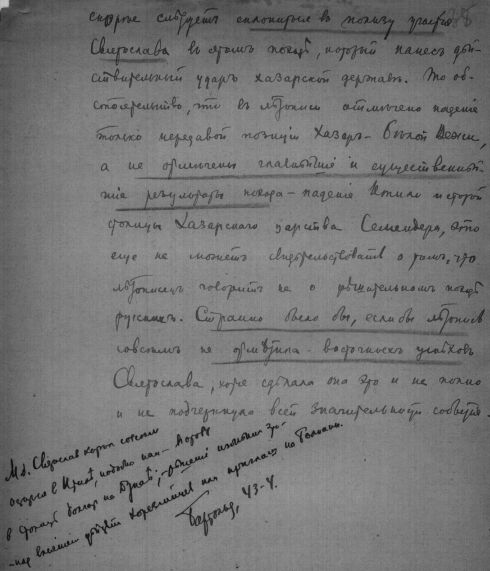 скорѣе слѣдуетъ склониться въ пользу участія
Святослава въ этомъ походѣ, который нанесъ дѣй-
ствительный ударъ Хазарской державѣ. То об-
стоятельство, что въ лѣтописи отмѣчено паденіе
только передовой позиціи Хазаръ - Бѣлой Вежи,
а не отмѣчены главнѣйшіе и существеннѣй-
шіе результаты похода - паденіе Итиля и второй
столицы Хазарскаго царства Семендера, это
еще не можетъ свидѣтельствовать о томъ, что
лѣтописецъ говоритъ не о рѣшительномъ походѣ
русскихъ. Странно было бы, если бы лѣтопись
совсѣмъ не отмѣтила восточныхъ успѣховъ
Святослава, хотя сдѣлала она это и не полно
и не подчеркнула всей значительности событія.
М. б. Святослав хотел совсем
в Итиле, подобно
в Дунае;
на
Бартольд, 43-4.